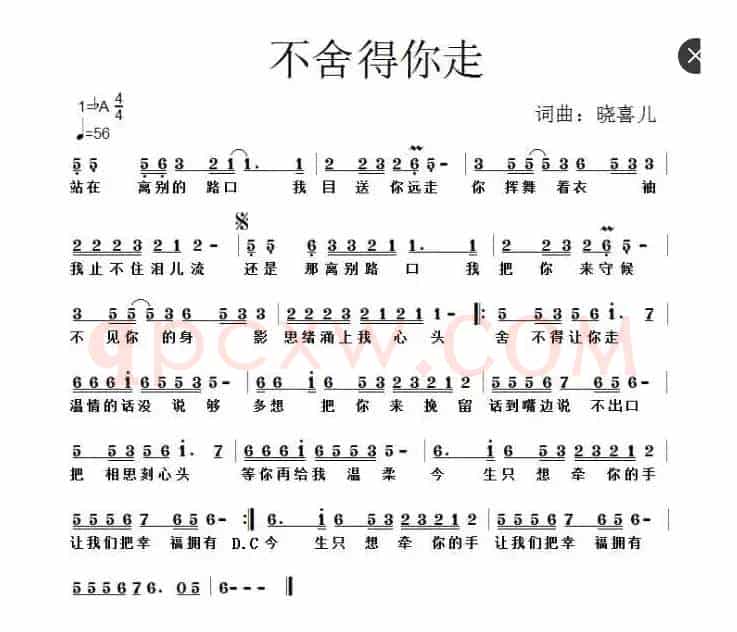 不舍得你走
1=♭A 4/4
♩=56
词曲：晓喜儿
5 5 5 6 3 2 1 1. 1 | 2 2 3 2 6 5 - | 3 5 5 3 5 6 5 3 5 3 |
站在 离别的 路口 我 目 送 你远走 你 挥舞 着衣 袖
2 2 2 3 2 1 2 - | 5 5 6 3 5 3 2 1 1. 1 | 2 2 3 2 6 5 - |
我止不住泪儿流 还是 那离别路 口 我 把 你 来守候
3 5 5 3 5 6 5 3 3 | 2 2 2 3 2 1 2 1 1 - ‖: 5 5 3 5 6 i. 7 |
不 见你 的身 影 思绪涌上我 心 头 舍 不得让你走
6 6 6 i 6 5 5 3 5 - | 6. i 6 5 3 2 3 2 1 2 | 5 5 5 6 7 6 5 6 - |
温情的话没 说 够 多想 把 你 来 挽 留 话到嘴边说 不出口
5 5 3 5 6 i. 7 | 6 6 6 i 6 5 5 3 5 - | 6. i 6 5 3 2 3 2 1 2 |
把 相思刻心头 等你再给我 温 柔 今 生只 想 牵 你的手
5 5 5 6 7 6 5 6 - :‖ 6. i 6 5 3 2 3 2 1 2 | 5 5 5 6 7 6 5 6 - |
让我们把幸 福拥有 D.C 今 生只 想 牵 你的手 让我们把幸 福拥有
5 5 5 6 7 6. 0 5 | 6 - - - ‖
qpcxw.COM